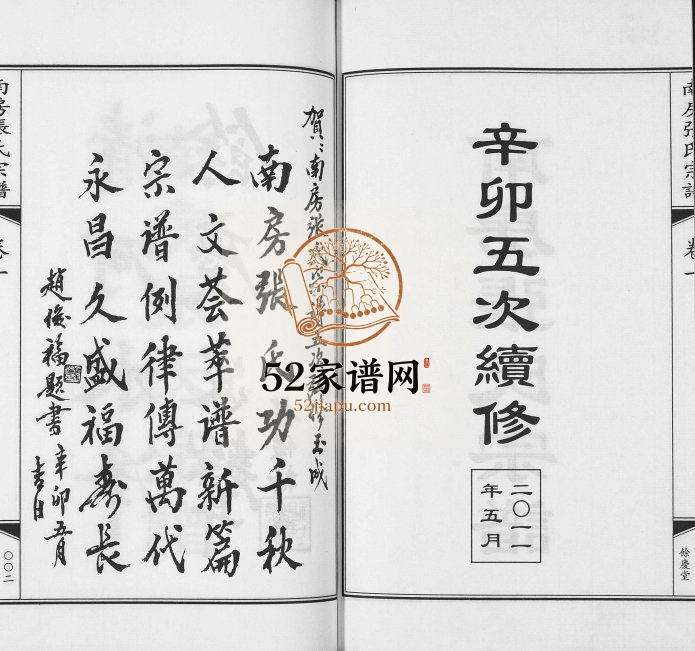 南房張氏宗譜
卷一
餘慶堂
辛卯五次續修
二〇一一
年五月
賀:南房張氏宗譜五次續修玉成
南房張氏功千秋
人文荟萃譜新篇
宗譜例律傳萬代
永昌久盛福壽長
趙俊福題書 辛卯五月
吉日
南房張氏宗譜
卷一
〇〇二
52家谱网
52jiapu.com